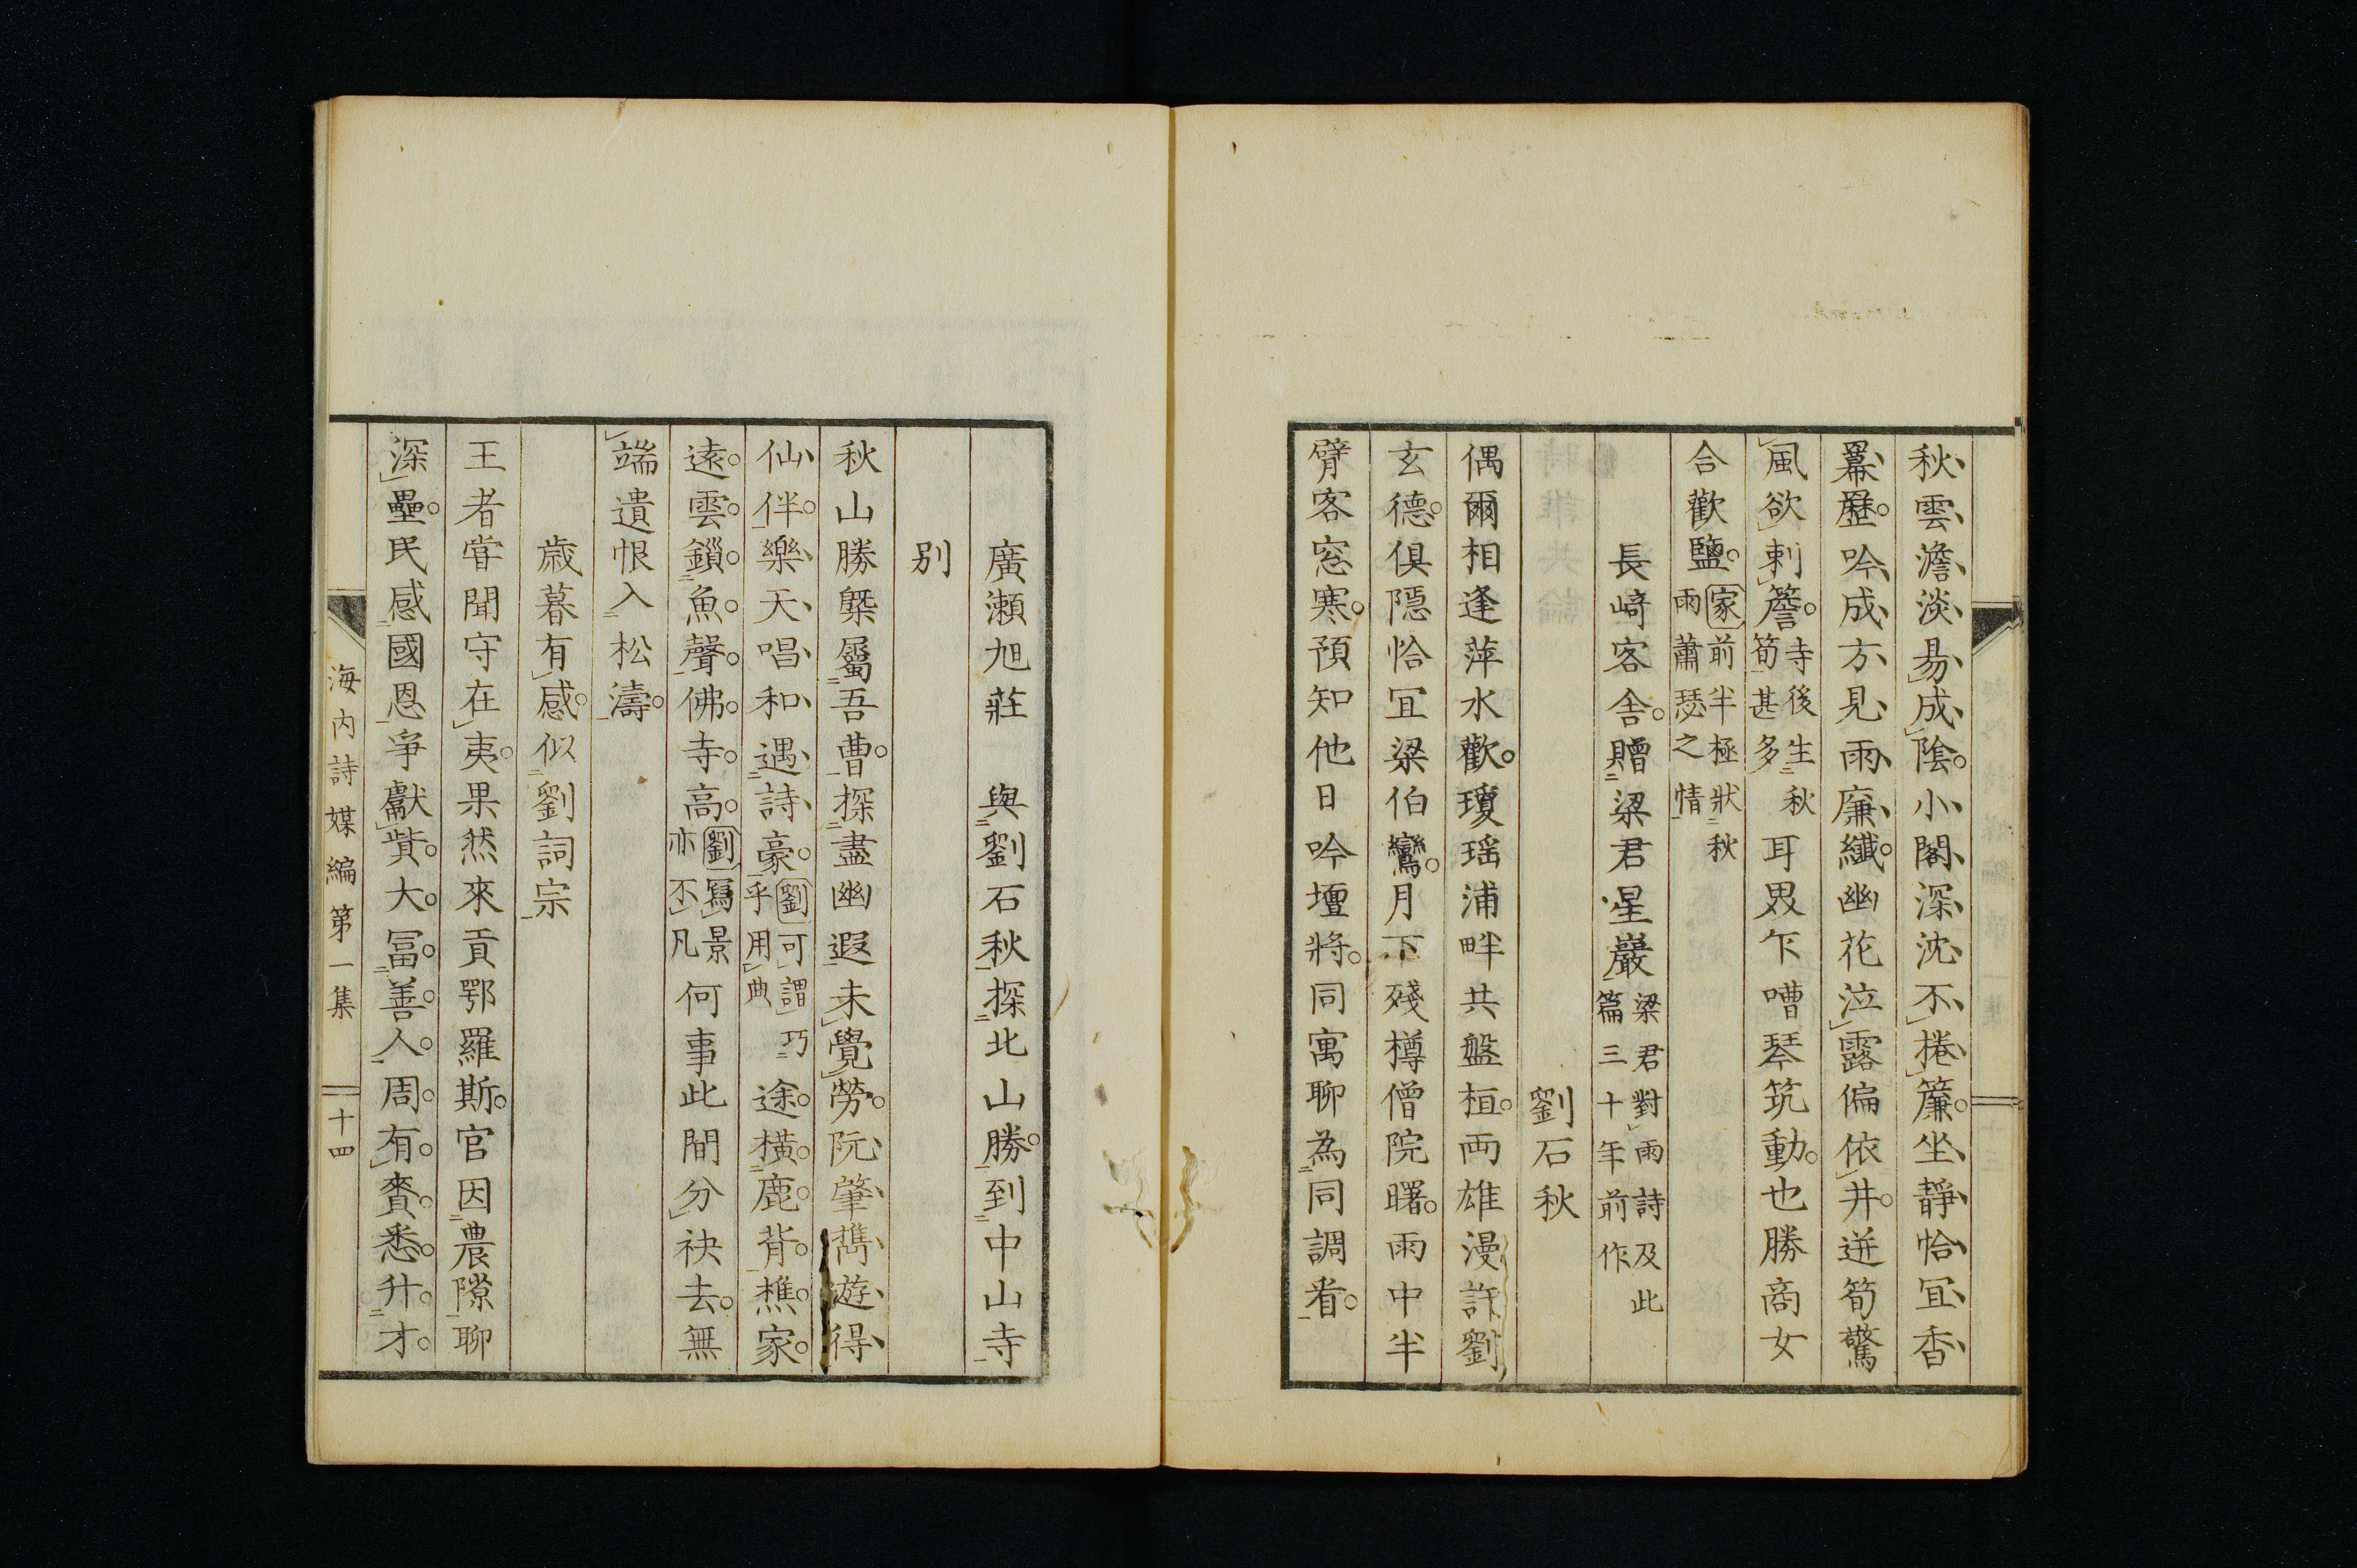 秋雲澹淡易成陰小閣深沈不捲簾坐靜恰冝香
羃歷吟成方見雨廉纖幽花泣露偏依井迸筍驚
風欲刺簷寺後生秋筍甚多耳畏乍嘈琴筑動也勝商女
合歡鹽家前半極狀秋雨蕭瑟之情
長﨑客舎贈梁君星巖梁君對雨詩及此篇三十年前作
劉石秋
偶爾相逢萍水歡瓊瑶浦畔共盤桓両雄漫許劉
玄德俱隱恰冝梁伯鸞月下殘樽僧院曙雨中半
臂客窓寒預知他日吟壇將同寓聊為同調看
廣瀬旭莊 與劉石秋探北山勝到中山寺
别
秋山勝槩屬吾曹探盡幽遐未覺勞阮肇舊遊得
仙伴樂天唱和遇詩豪劉可謂巧乎用典途橫鹿背樵家
遠雲鎖魚聲佛寺高劉寫景亦不凡何事此間分袂去無
端遺恨入松濤
歳暮有感似劉詞宗
王者甞聞守在夷果然來貢鄂羅斯官因農隙聊
深壘民感國恩爭獻貲大冨善人周有賚悉升才
海内詩媒編第一集 十四